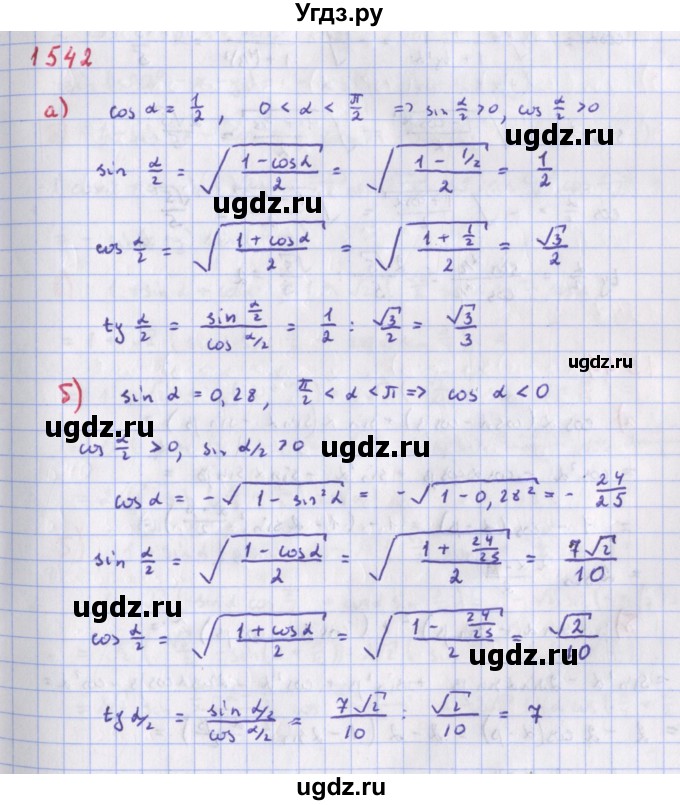 Угдз.ру
1542
а) cos α = 1/2, 0 < α < π/2 => sin α/2 > 0, cos α/2 > 0
sin α/2 = √((1 - cos α)/2) = √((1 - 1/2)/2) = 1/2
ugdz.ru
ugdz.ru
cos α/2 = √((1 + cos α)/2) = √((1 + 1/2)/2) = √3/2
tg α/2 = (sin α/2)/(cos α/2) = 1/2 : √3/2 = √3/3
ugdz.ru
б) sin α = 0,28, π/2 < α < π => cos α < 0
ugdz.ru
cos α/2 > 0, sin α/2 > 0
ugdz.ru
cos α = -√(1 - sin²α) = -√(1 - 0,28²) = - 24/25
ugdz.ru
sin α/2 = √((1 - cos α)/2) = √((1 + 24/25)/2) = 7√2/10
ugdz.ru
cos α/2 = √((1 + cos α)/2) = √((1 - 24/25)/2) = √2/10
ugdz.ru
tg α/2 = (sin α/2)/(cos α/2) = 7√2/10 : √2/10 = 7
ugdz.ru
ugdz.ru